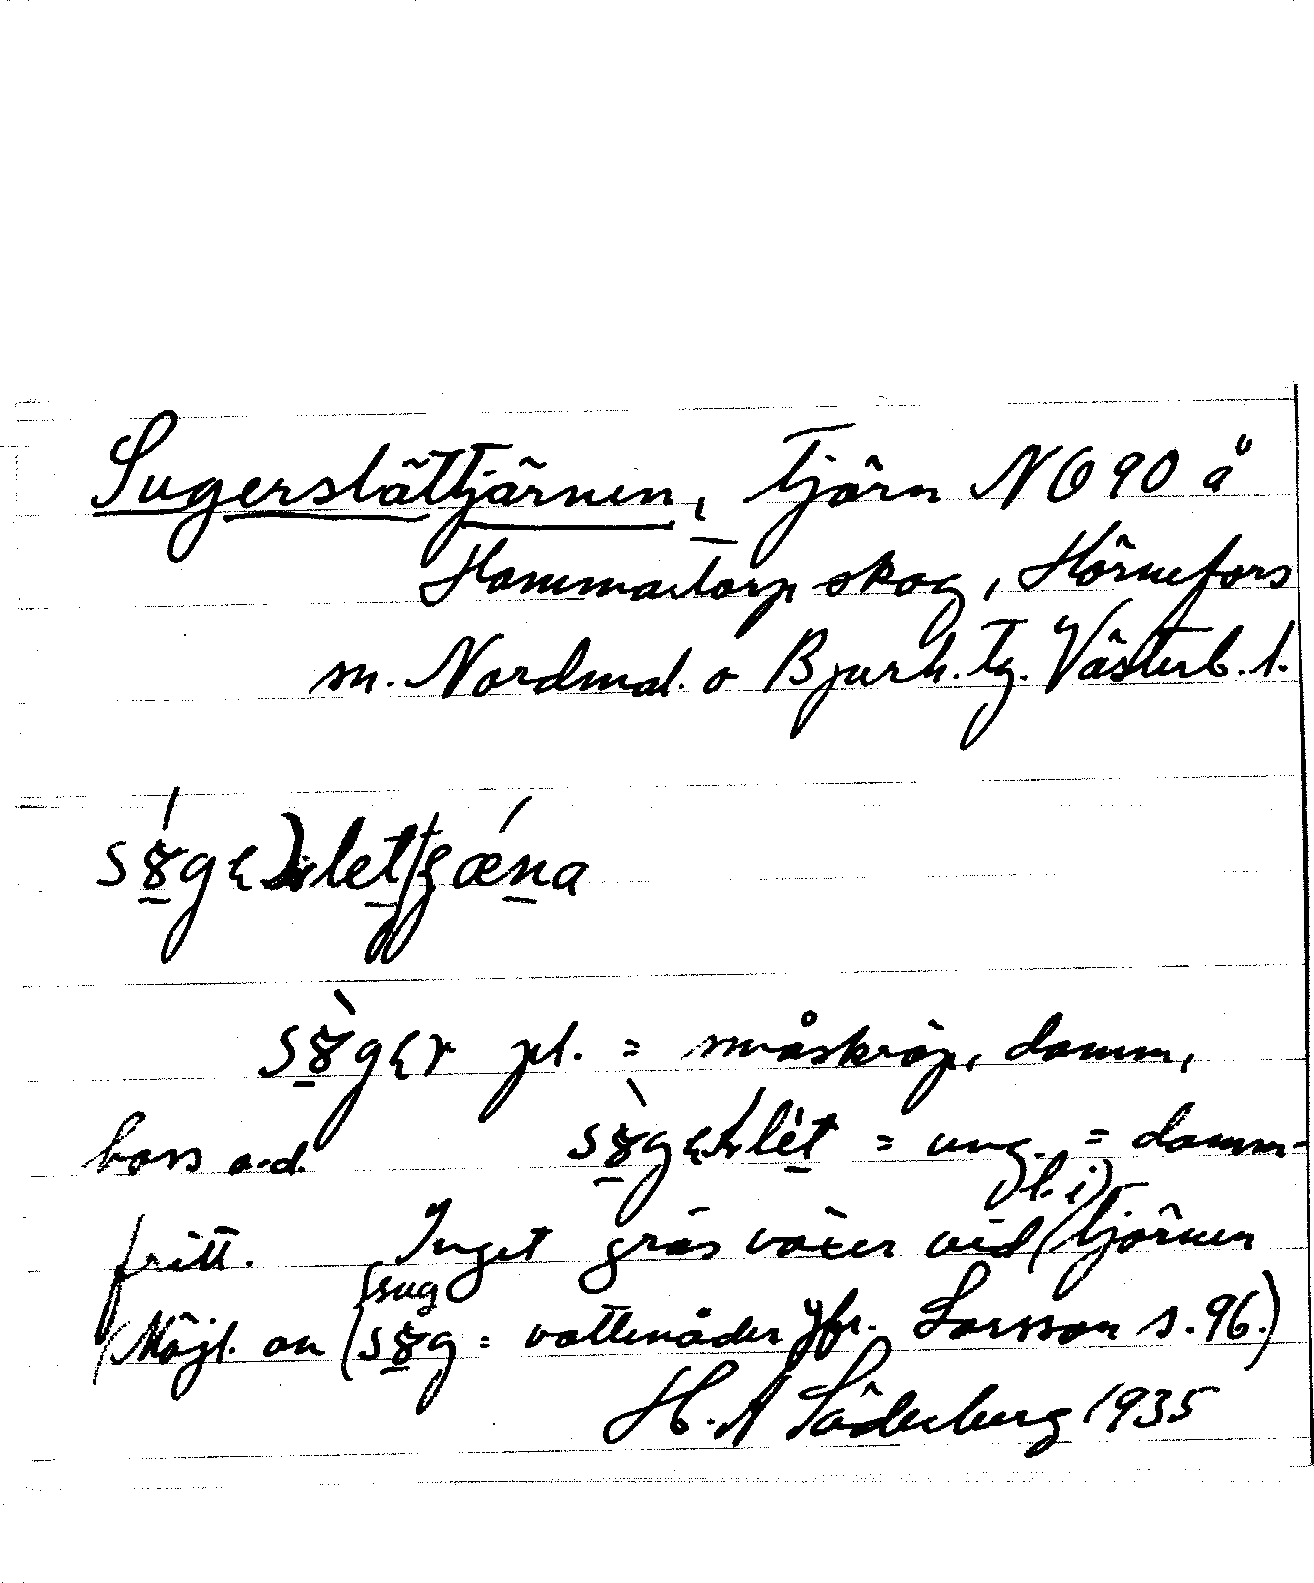 Sugerslättjärnen, Tjärn NO 90 å
Hammartorp skog, Hörnefors
sn. Nordmal. o Bjurh. Tg. Västerb. l.
pl. = småskräp, damm,
boss o.d. = ung. = damm-
fritt. Inget gräs växer vid (l. i) tjärnen
(Möjl. en sug = vattenåder jfr. Larsson s. 96.)
H. A Söderberg 1935